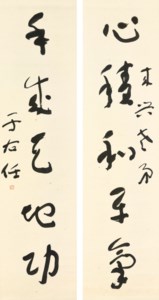 心積和平氣
未興老弟
手成天地功
于右任